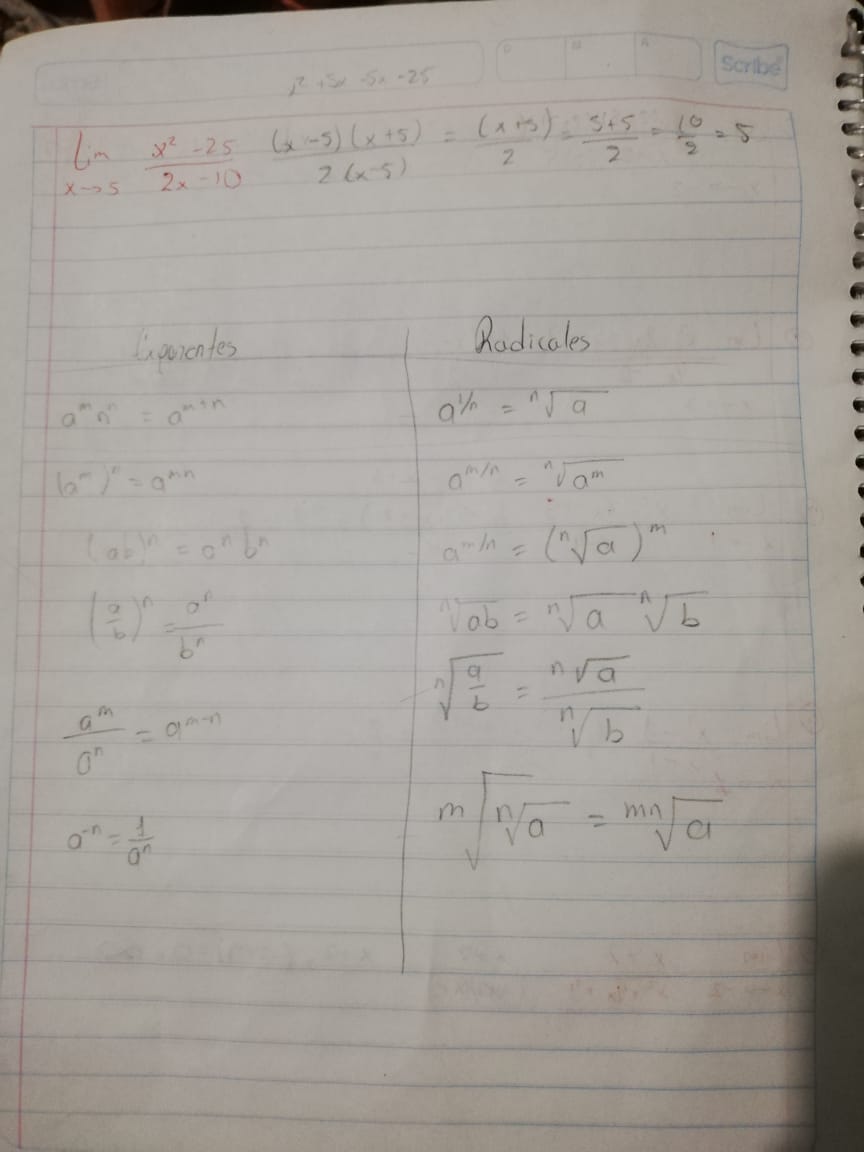 Scribe
x² + 5x - 5x - 25
Lim x→5 x² - 25 / 2x - 10 (x - 5)(x + 5) / 2(x - 5) = (x + 5) / 2 = 5 + 5 / 2 = 10 / 2 = 5
Exponentes
aᵐ nⁿ = aᵐ⁺ⁿ
(aᵐ)ⁿ = aᵐⁿ
(ab)ⁿ = aⁿ bⁿ
(a/b)ⁿ = aⁿ / bⁿ
aᵐ / aⁿ = aᵐ⁻ⁿ
a⁻ⁿ = 1 / aⁿ
Radicales
a^(1/n) = ⁿ√a
a^(m/n) = ⁿ√(aᵐ)
a^(m/n) = (ⁿ√a)ᵐ
ⁿ√(ab) = ⁿ√a ⁿ√b
ⁿ√(a/b) = ⁿ√a / ⁿ√b
ᵐ√(ⁿ√a) = ᵐⁿ√a